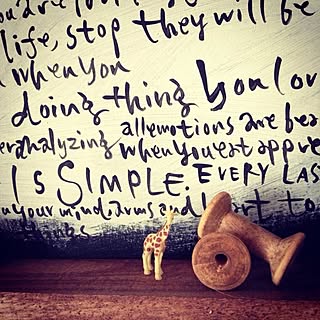 life, stop they will be
when you
doing thing you lov
eranalyzing allemotions are bea
when you eat appre
IS SIMPLE. EVERY LAS
your mind, arms and to